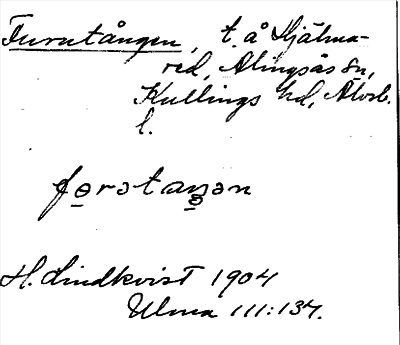 Furutången, t. å Hjälma-
red, Alingsås sn,
Kullings hd, Älvsb.
l.
fɵrɘtaŋɘn
H. Lindkvist 1904
Ulma 111:134.